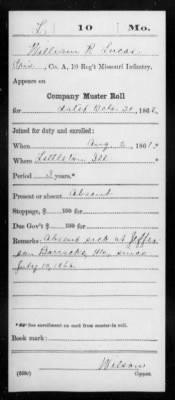 L 10 Mo.
William R. Lucas
Priv., Co. A, 10 Reg't Missouri Infantry.
Appears on
Company Muster Roll
for dated Oct. 31, 1862.
Joined for duty and enrolled:
When Aug 2, 1861.*
Where Littleton Ill
Period 3 years.*
Present or absent Absent
Stoppage, $ 100 for
Due Gov't $ 100 for
Remarks: Absent sick at Jeffer
son Barracks, Mo, since
July 10, 1862.
*See enrollment on card from muster-in roll.
Book mark:
Wilson
(358c) Copyist.